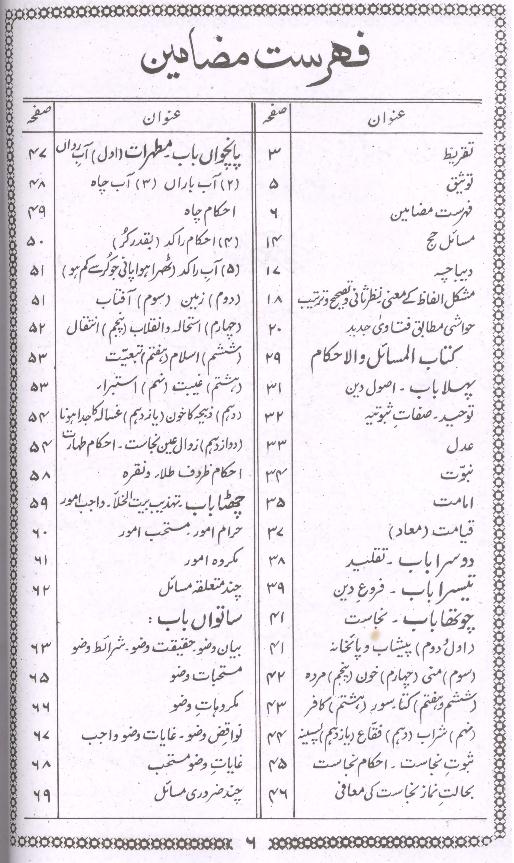 فہرست مضامین
عنوان صفحہ
تقریظ ۳
توثیق ۵
فہرست مضامین ۶
مسائل حج ۱۴
دیباچہ ۱۷
مشکل الفاظ کے معنی نظرثانی و تصحیح و ترتیب ۱۸
حواشی مطابق فتاویٰ جدید ۲۰
کتاب المسائل والاحکام ۲۹
پہلا باب ۔ اصول دین ۳۱
توحید ۔ صفات ثبوتیہ ۳۲
عدل ۳۳
نبوّت ۳۴
امامت ۳۵
قیامت (معاد) ۳۷
دوسرا باب ۔ تقلید ۳۸
تیسرا باب ۔ فروع دین ۳۹
چوتھا باب ۔ نجاست ۴۱
(اول و دوم) پیشاب و پائخانہ ۴۱
(سوم) منی (چہارم) خون (پنجم) مردہ ۴۲
(ششم و ہفتم) کتا ۔ سور (ہشتم) کافر ۴۳
(نہم) شراب (دہم) فقاع (یازدہم) پسینہ ۴۴
ثبوت نجاست ۔ احکام نجاست ۴۵
بحالت نماز نجاست کی معافی ۴۶
عنوان صفحہ
پانچواں باب ۔ مطہرات (اول) آب رواں ۴۷
(۲) آب باراں (۳) آب چاہ ۴۸
احکام چاہ ۴۹
(۴) احکام راکد (بقدر کُر) ۵۰
(۵) آب راکد (ٹھرا ہوا پانی جو کُر سے کم ہو) ۵۱
(دوم) زمین (سوم) آفتاب ۵۱
(چہارم) استحالہ و انقلاب (پنجم) انتقال ۵۲
(ششم) اسلام (ہفتم) تبعیّت ۵۳
(ہشتم) غیبت (نہم) استبراء ۵۳
(دہم) ذبیحہ کا خون (یازدہم) غسالہ کا جدا ہونا ۵۴
(دوازدہم) زوال عین نجاست ۔ احکام طہارت ۵۴
احکام ظروف طلاء و نقرہ ۵۸
چھٹا باب ۔ تہذیب بیت الخلاء ۔ واجب امور ۵۹
حرام امور ۔ مستحب امور ۶۰
مکروہ امور ۶۱
چند متعلقہ مسائل ۶۲
ساتواں باب :
بیان وضو ۔ حقیقت وضو ۔ شرائط وضو ۶۳
مستحبات وضو ۶۵
مکروہات وضو ۶۶
نواقض وضو ۔ غایات وضو واجب ۶۷
غایات وضو مستحب ۶۸
چند ضروری مسائل ۶۹
۶